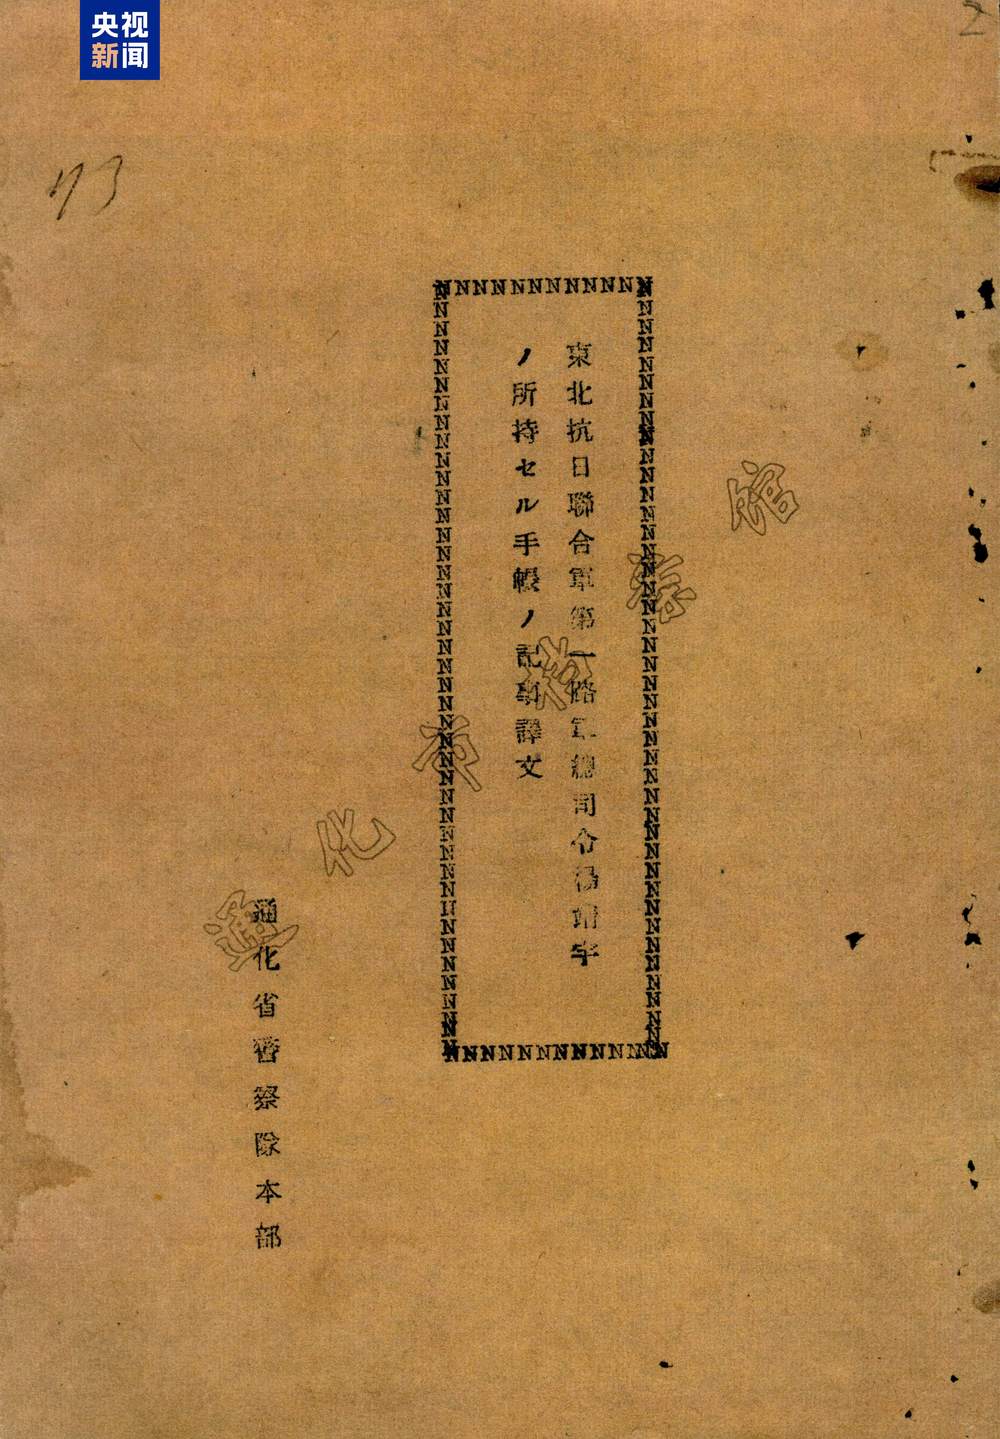 央视
新闻
73
2
東北抗日聯合軍第一路軍總司令楊靖宇
ノ所持セル手帳ノ記事譯文
通化省警察隊本部
通化市档案馆